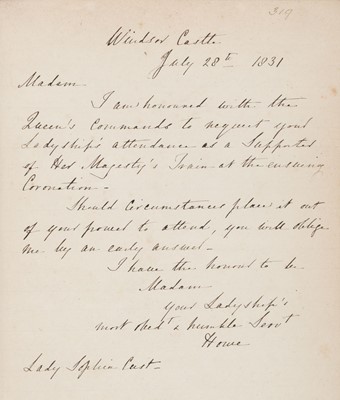 319
Windsor Castle
July 28th 1831
Madam
I am honoured with the
Queen's commands to request your
Ladyship's attendance as a Supporter
of Her Majesty's Train at the ensuing
Coronation_
Should Circumstances place it out
of your power to attend, you will oblige
me by an early answer_
I have the honour to be
Madam
your Ladyship's
most obedt & humble Servt
Howe
Lady Sophia Cust_